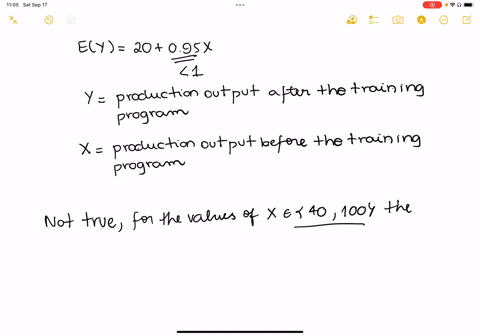 11:05 Sat Sep 17
E(Y) = 20 + 0.95X
<1
Y = production output after the training
program
X = production output before the training
program
Not true, for the values of X ∈ {40, 100} the